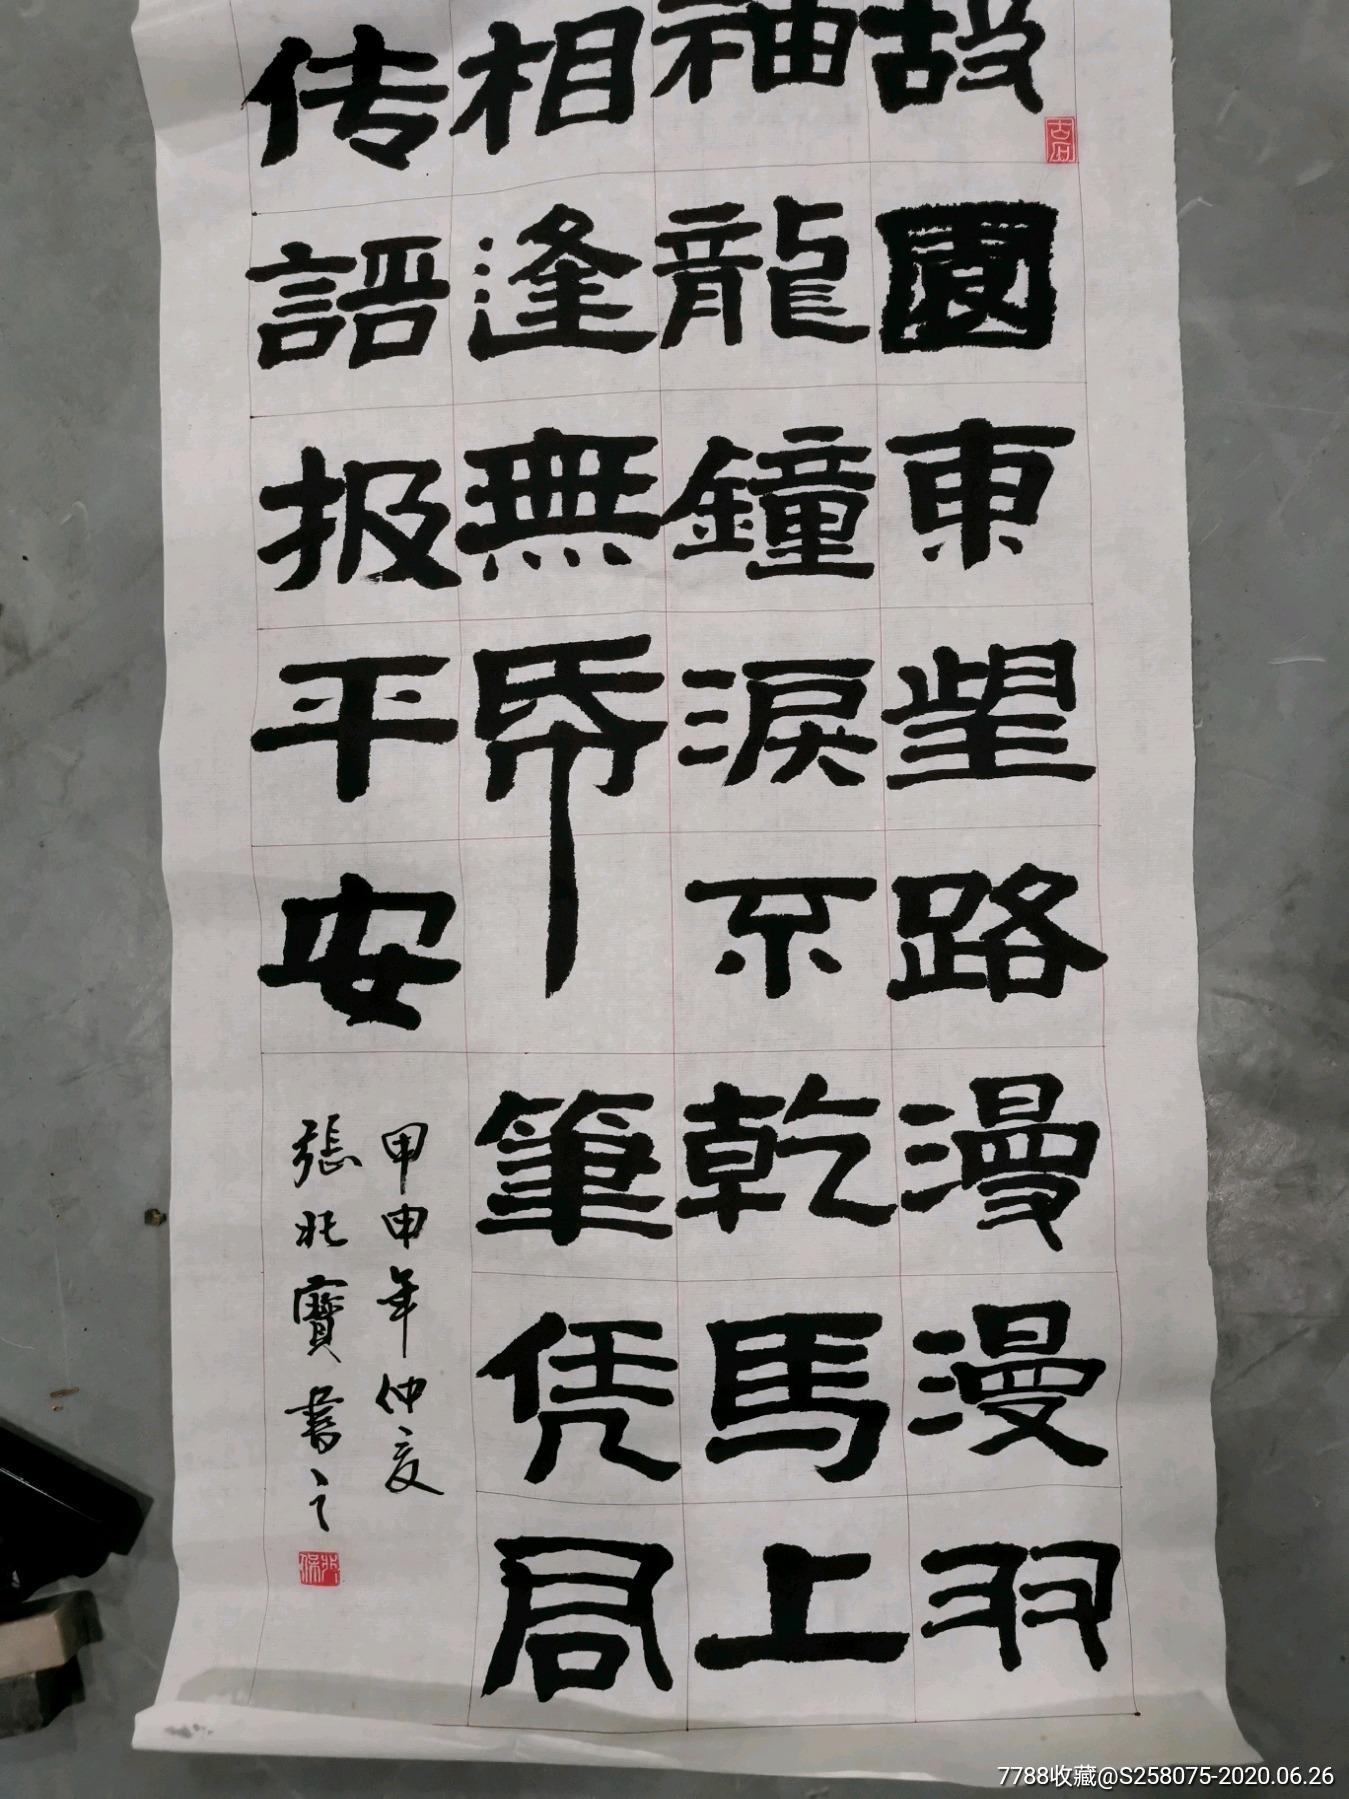 故園東望路漫漫双
袖龍鐘淚不乾馬上
相逢無帋筆凭君
传語报平安
甲申年仲夏
張兆寶書之
7788收藏@S258075-2020.06.26